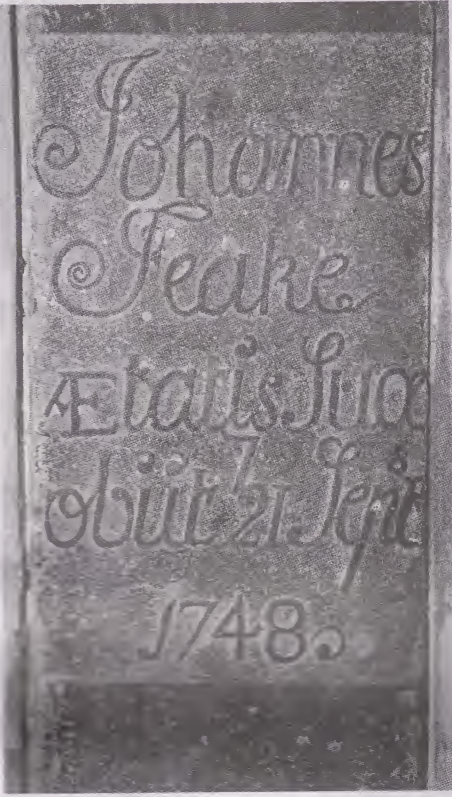 Johannes
Feake
Ætatis Suæ
7
obiit 21 Sept
1748